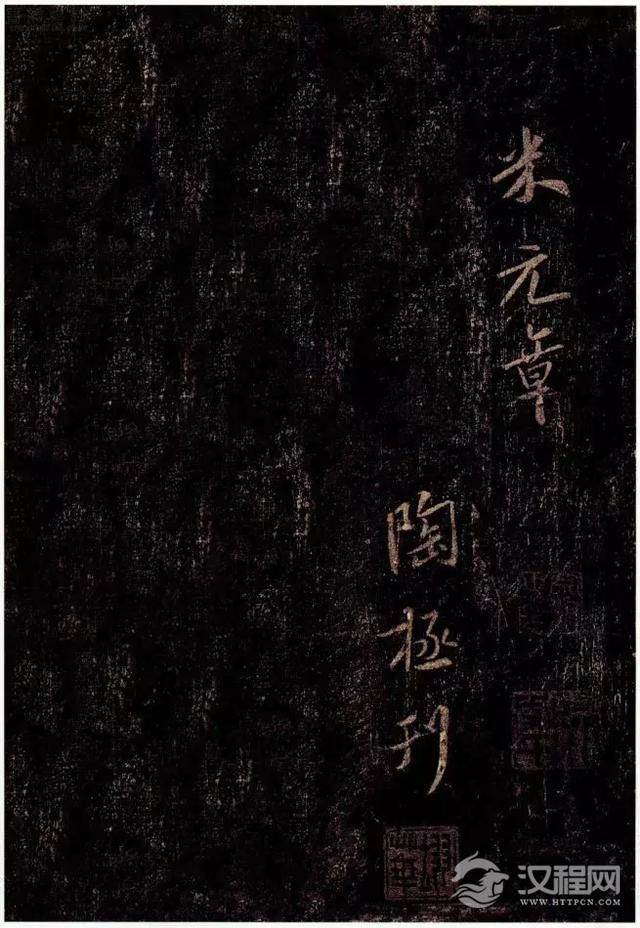 米元章
陶极刊
汉程网
WWW.HTTPCN.COM